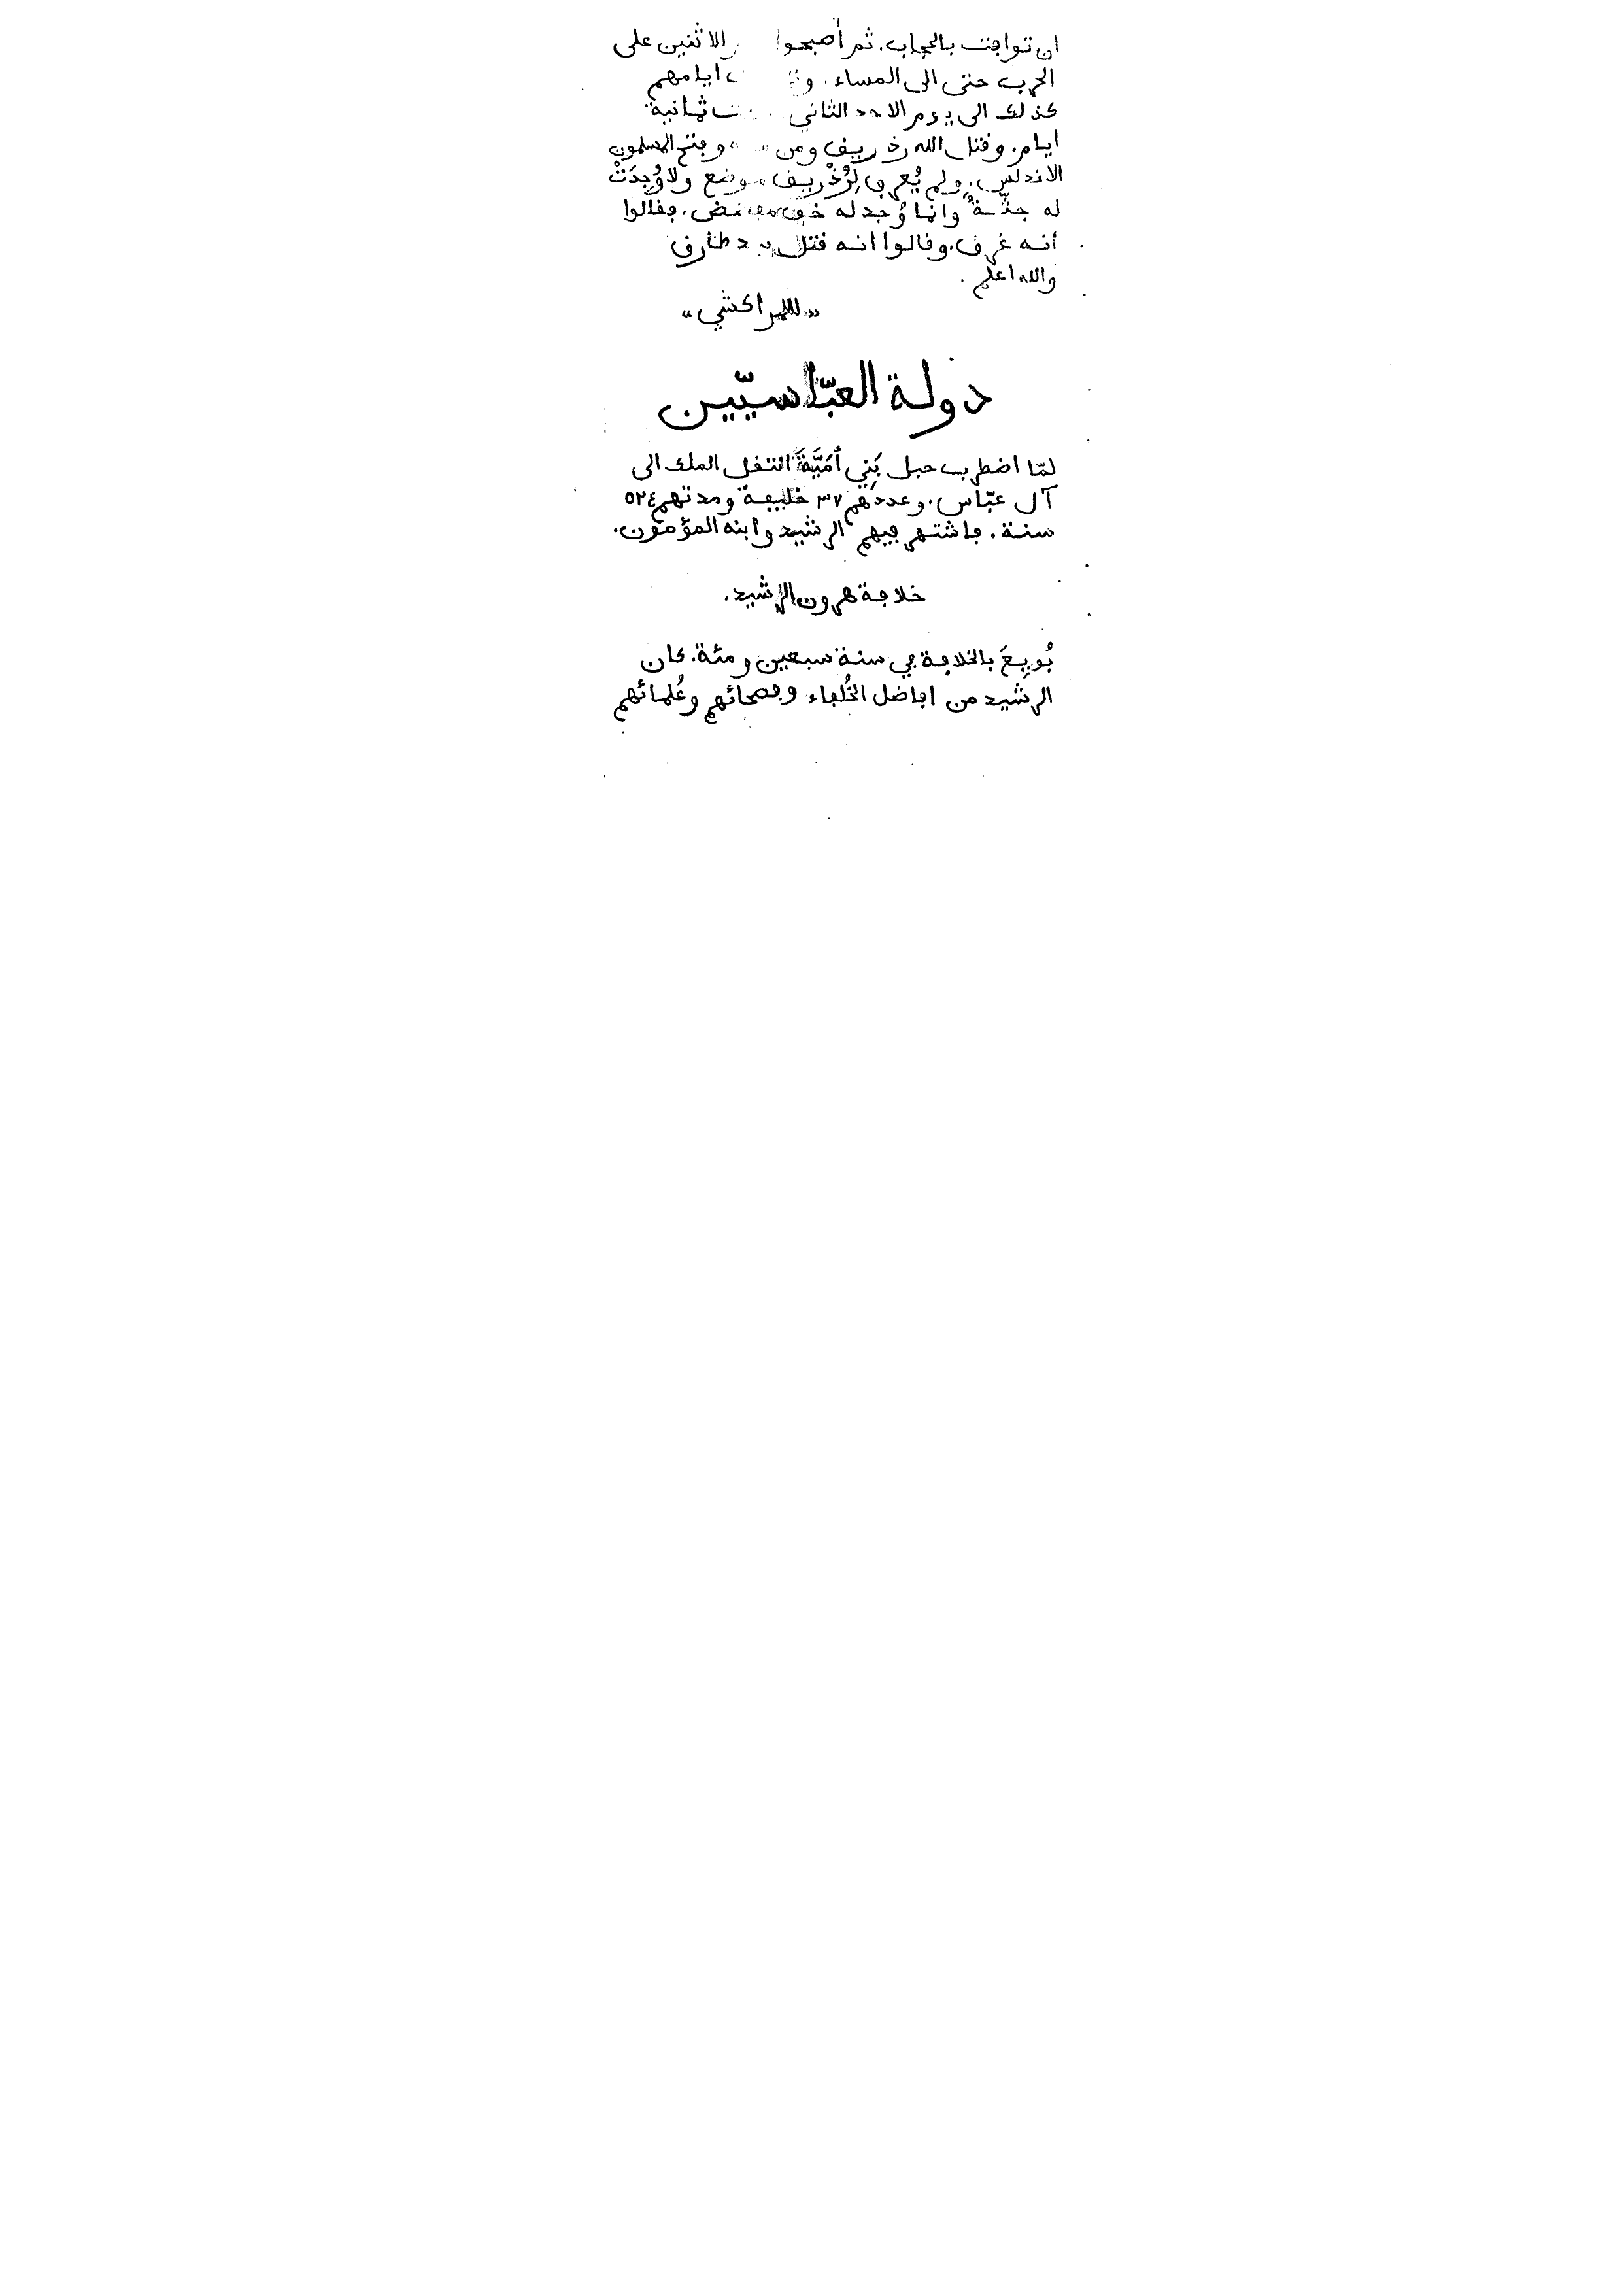 ان تواقفت بالحجاب. ثم أصبحوا الاثنين على
الحرب حتى الى المساء. ايامهم
كذلك الى يوم الاحد الثاني ثمانية
ايام. وقتل الله رذريق ومن وفتح المسلمون
الاندلس. ولم يُعرف لِرُذْريق موضع ولا وُجِدَتْ
له جثّةٌ وانما وُجد له خف مفضض. فقالوا
أنه غرق. وقالوا انه قتل طارق
والله اعلم.
«للمراكشي»
دولة العبّاسيّين
لمّا اضطرب حبل بَنِي أمَيَّةَ انتقل الملك الى
آل عبّاس. وعددهم ٣٧ خليفة ومدتهم ٥٢٤
سنة. فاشتهر فيهم الرشيد وابنه المؤمون.
خلافة هرون الرشيد.
بُويِعَ بالخلافة في سنة سبعين ومئة. كان
الرشيد من افاضل الخُلفاء وفصحائهم وعُلمائهم